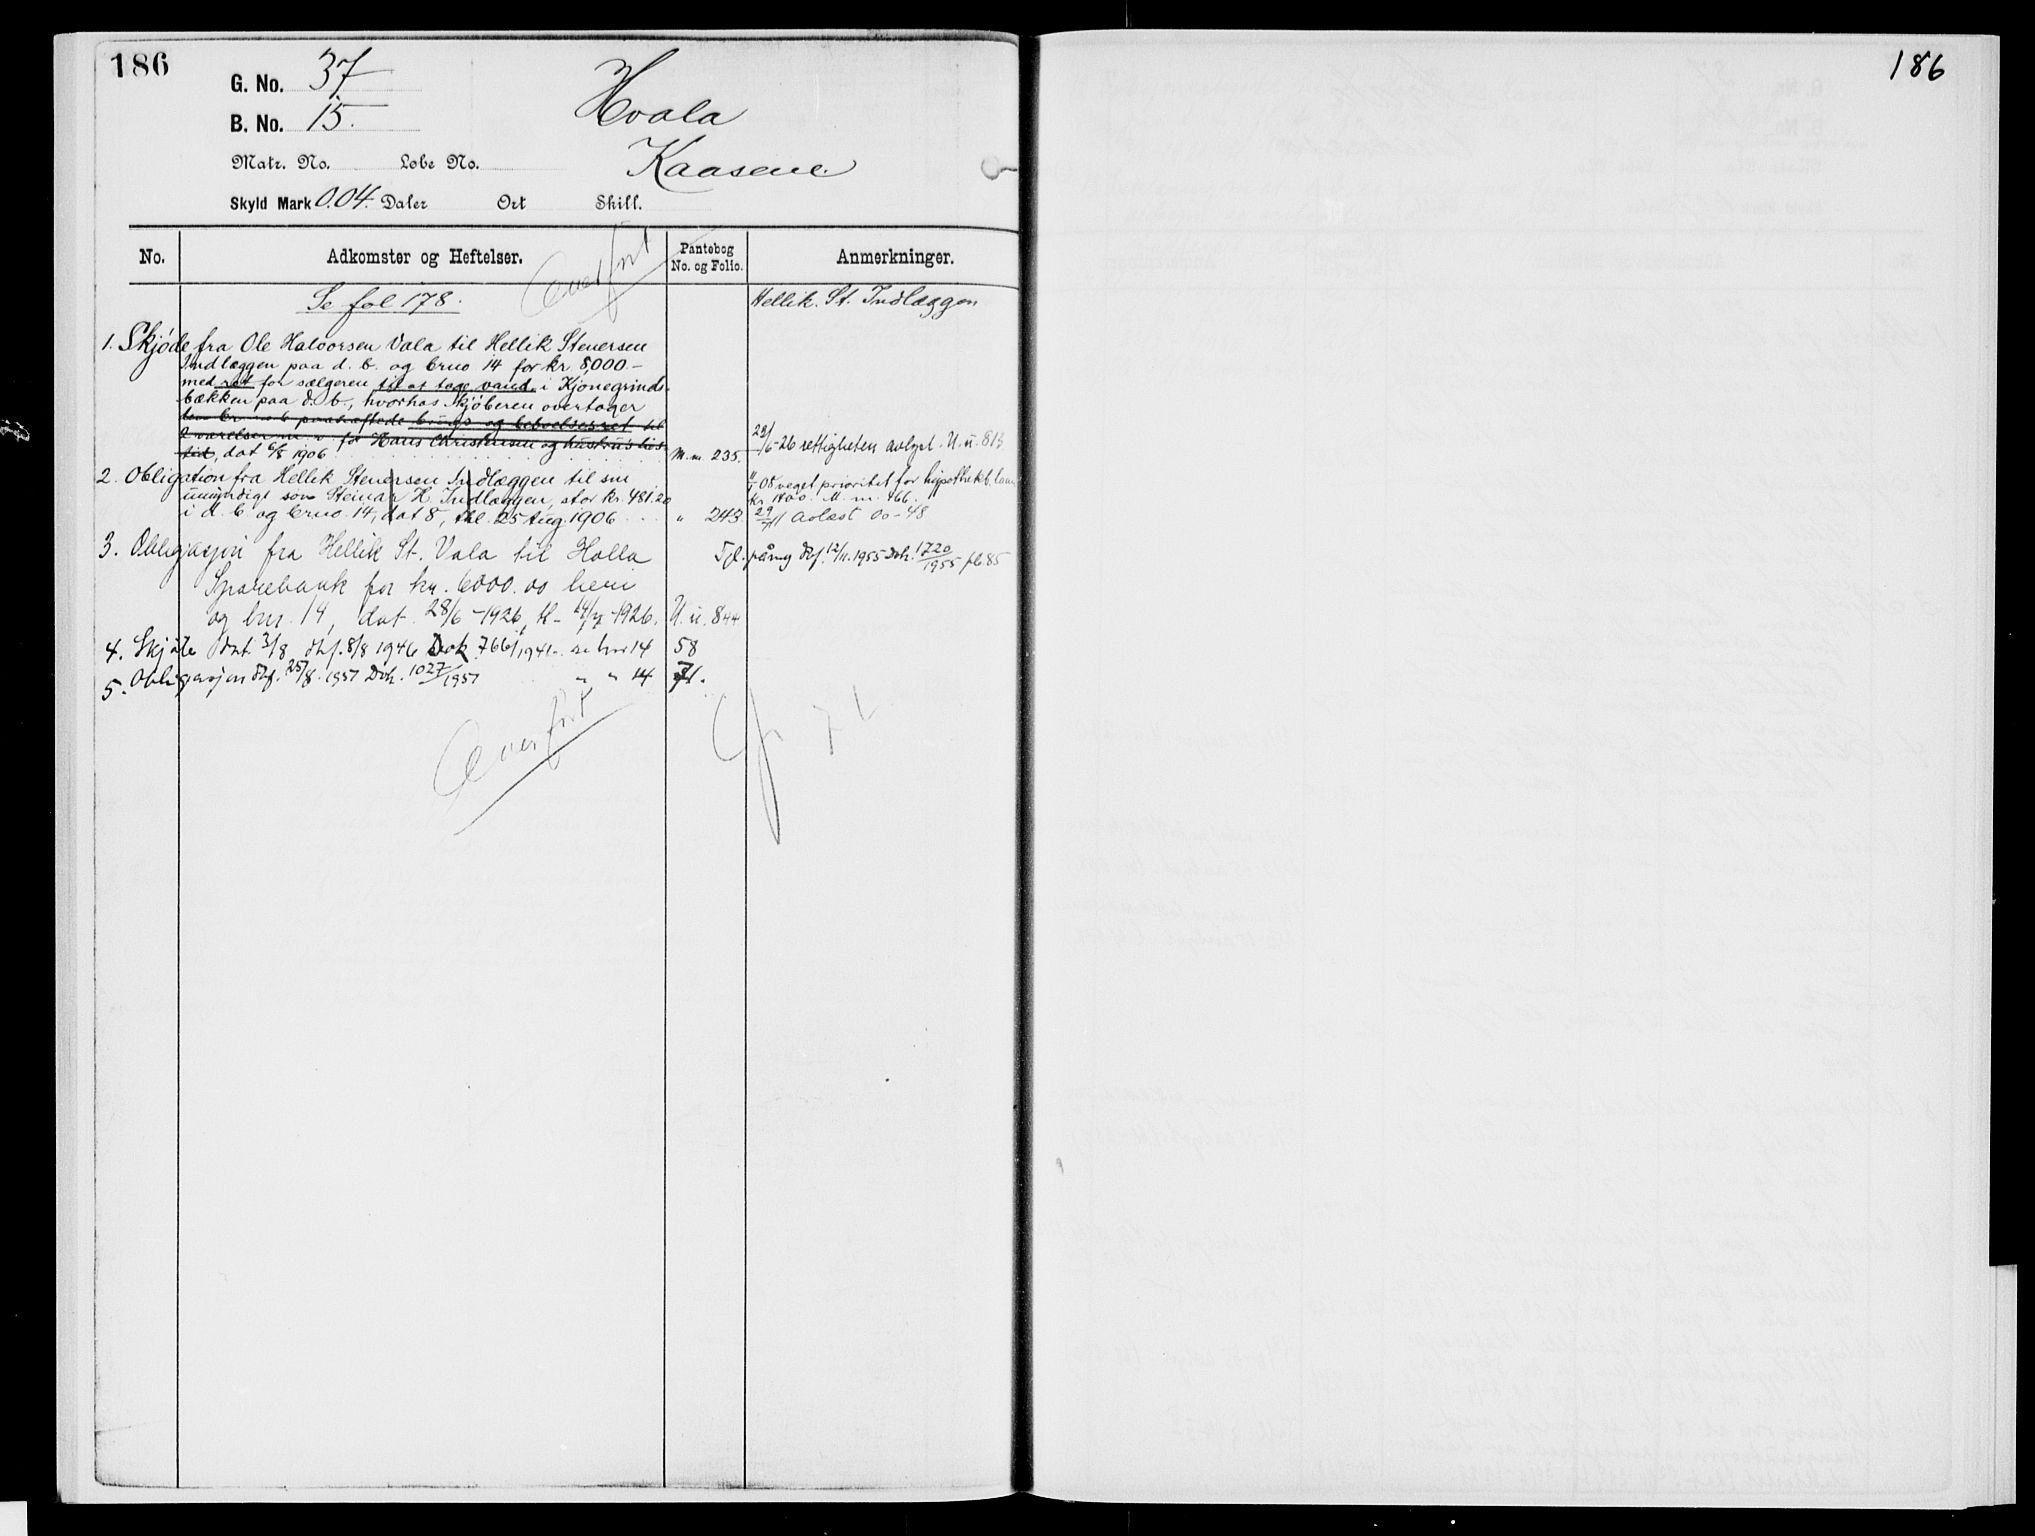 186
186
G. No. 37
B. No. 15.
Hvala
Kaasene
Matr. No. Lobe No.
Skyld Mark 0.04. Daler Ort Skill.
No. Adkomster og Heftelser. Pantebog No. og Folio. Anmerkninger.
Overført
Se fol 178.
Hellik. St. Indlæggen
1. Skjøde fra Ole Halvorsen Vala til Hellik Stenersen
Indlæggen paa d. b. og brno 14 for kr 8,000 –
med ret for sælgeren til at tage vand i Kjonegrinds-
bækken paa d. b., hvorhos kjøberen overtager
den br no 6 paahæftede brugs og beboelsesret til
2 værelser for Hans Christensen og hustrus lis-
tid, dat 6/8 1906 M. m. 235.
29/6-26 rettigheten avlyst. U. u. 813
2. Obligation fra Hellik Stenersen Indlæggen til sin
umyndige søn Steinar H. Indlæggen, stor kr. 481.20
i d. b og brno. 14, dat 8, thl. 25 Aug. 1906 " 243
08 veget prioritet for hypothekb. laan
kr. 1400. M. m. 466.
29/11 Avlæst 00-48
3. Obligasjon fra Hellik St. Vala til Holla
Sparebank for kr. 6000.00 heri
og bnr. 14, dat. 28/6-1926, tl- 14/7-1926. U. u. 844
Tgl. påny dbf. 12/11.1955 Dok. 1720/1955 pb. 85
4. Skjøte dat. 3/8 dbf. 8/8 1946 Dok 766/1946. se bnr 14 58
5. Obligasjon dbf. 25/8.1957 Dok. 1027/1957 " " 14 71.
Overført
71